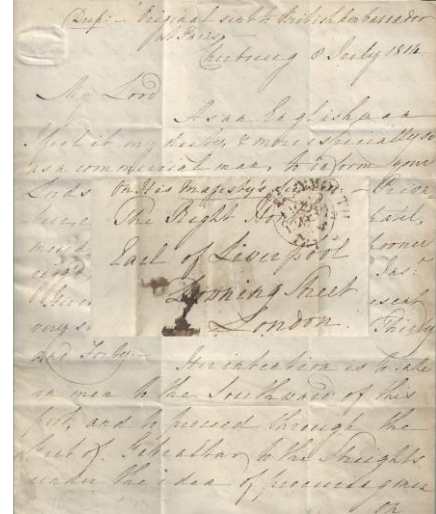 Dup: - Original sent to British Ambassador
at Paris
Cherbourg 8 July 1814
My Lord
As an Englishman
I feel it my duty, & more especially so
as a commercial man, to inform your
Lords
On His Majesty's
The Right Hon
Earl of Liverpool
Downing Street
London.
very s
Thirty
and Forty. -
His intention is to take
in men to the Southward of this
port, and to proceed through the
Gut of Gibraltar to the Streights
under the idea of procuring men
or